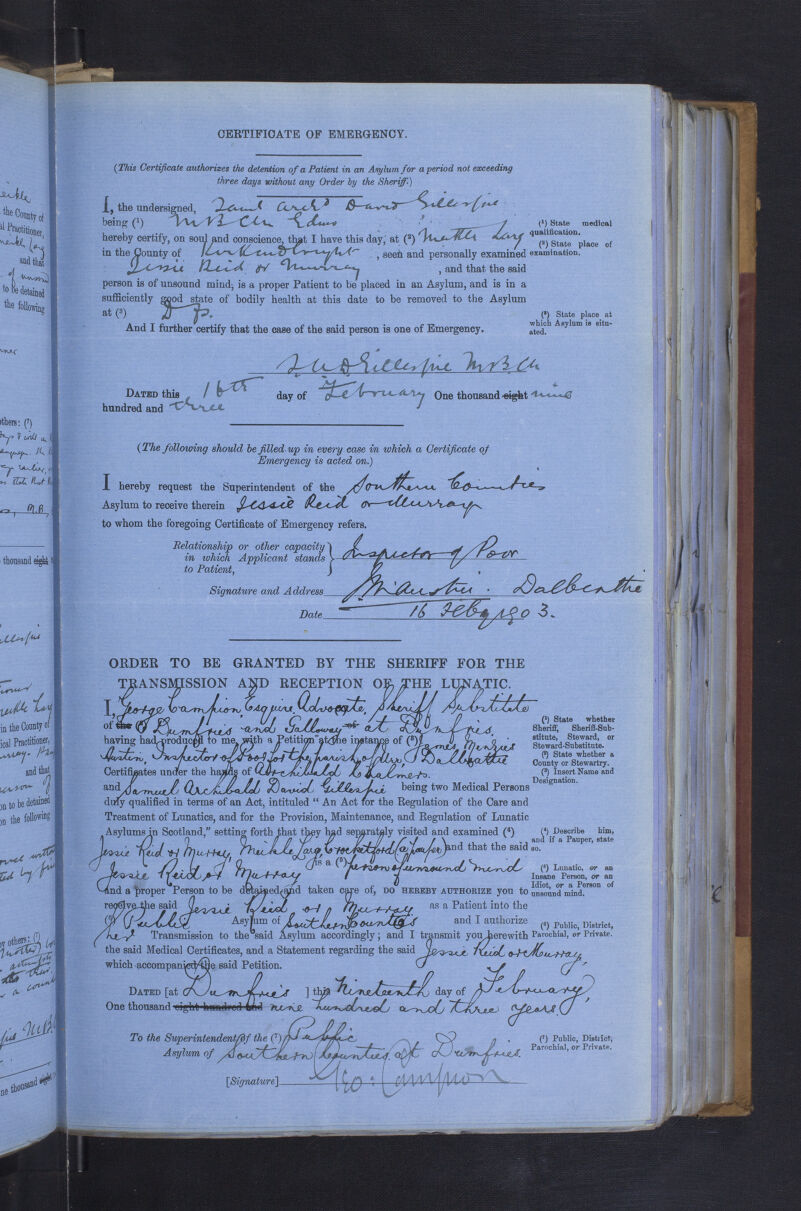 CERTIFICATE OF EMERGENCY.
(This Certificate authorizes the detention of a Patient in an Asylum for a period not exceeding
three days without any Order by the Sheriff.)
I, the undersigned, Saml Archd David Gillespie
being (¹) M B Ch Edin
hereby certify, on soul and conscience, that I have this day, at (²) Meikle Larg
in the County of Kirkcudbright, seen and personally examined
Jessie Reid or Murray, and that the said
person is of unsound mind, is a proper Patient to be placed in an Asylum, and is in a
sufficiently good state of bodily health at this date to be removed to the Asylum
at (³) Dfs.
And I further certify that the case of the said person is one of Emergency.
(¹) State medical
qualification.
(²) State place of
examination.
(³) State place at
which Asylum is situ-
ated.
S A D Gillespie M B Ch
DATED this 16th day of February One thousand eight nine
hundred and three
(The following should be filled up in every case in which a Certificate of
Emergency is acted on.)
I hereby request the Superintendent of the Southern Counties
Asylum to receive therein Jessie Reid or Murray
to whom the foregoing Certificate of Emergency refers.
Relationship or other capacity
in which Applicant stands
to Patient,
Inspector of Poor
Signature and Address J M Austin. Dalbeattie
Date 16 Feby 1903.
ORDER TO BE GRANTED BY THE SHERIFF FOR THE
TRANSMISSION AND RECEPTION OF THE LUNATIC.
I, George Campion Esquire, Advocate, Sheriff Substitute
of the (²) Dumfries and Galloway at Dumfries,
having had produced to me, with a Petition at the instance of (³) James Menzies
Austin, Inspector of Poor for the parish of Urr, Dalbeattie
Certificates under the hands of Archibald Chalmers.
and Samuel Archibald David Gillespie being two Medical Persons
duly qualified in terms of an Act, intituled "An Act for the Regulation of the Care and
Treatment of Lunatics, and for the Provision, Maintenance, and Regulation of Lunatic
Asylums in Scotland," setting forth that they had separately visited and examined (⁴)
Jessie Reid or Murray, Meikle Larg Crocketford (a pauper) and that the said
Jessie Reid or Murray is a (⁵) person of unsound mind
and a proper Person to be detained and taken care of, DO HEREBY AUTHORIZE you to
receive the said Jessie Reid or Murray as a Patient into the
(⁶) Public Asylum of Southern Counties and I authorize
her Transmission to the said Asylum accordingly; and I transmit you herewith
the said Medical Certificates, and a Statement regarding the said Jessie Reid or Murray,
which accompanied the said Petition.
(¹) State whether
Sheriff, Sheriff-Sub-
stitute, Steward, or
Steward-Substitute.
(²) State whether a
County or Stewartry.
(³) Insert Name and
Designation.
(⁴) Describe him,
and if a Pauper, state
so.
(⁵) Lunatic, or an
Insane Person, or an
Idiot, or a Person of
unsound mind.
(⁶) Public, District,
Parochial, or Private.
DATED [at Dumfries ] this Nineteenth day of February,
One thousand eight hundred and nine hundred and three years
To the Superintendent of the (⁷) Public
Asylum of Southern Counties at Dumfries.
(⁷) Public, District,
Parochial, or Private.
[Signature] Geo: Campion